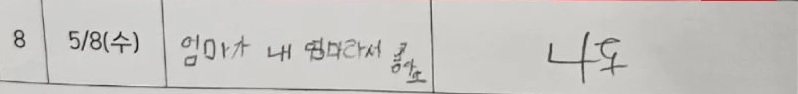 8 5/8(수) 엄마가 내 엄마라서 좋아요 나도